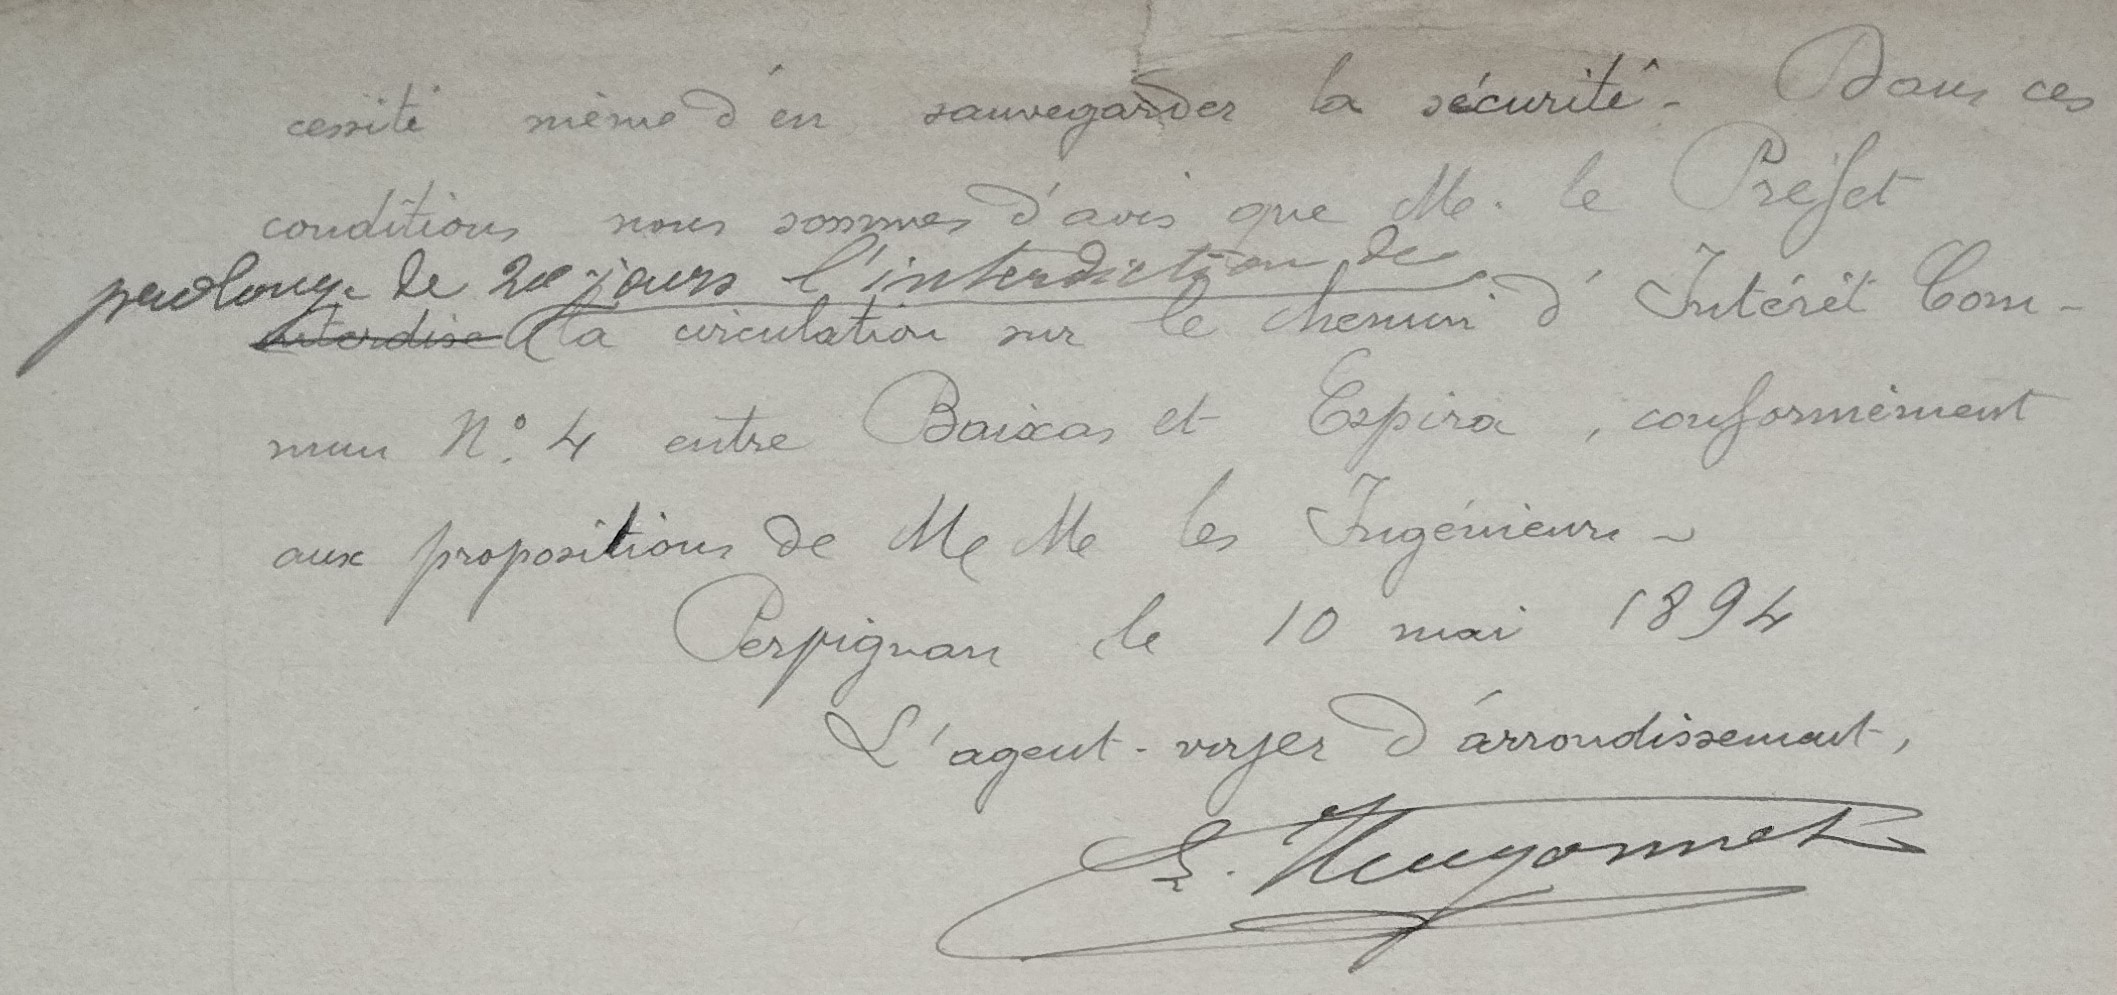 cessité même d'en sauvegarder la sécurité. Dans ces
conditions nous sommes d'avis que M. le Préfet
prolonge de 20 jours l'interdiction de
interdise la circulation sur le chemin d'Intérêt Com-
mun N° 4 entre Baixas et Espira, conformément
aux propositions de M M les Ingénieurs
Perpignan le 10 mai 1894
L'agent-voyer d'arrondissement,